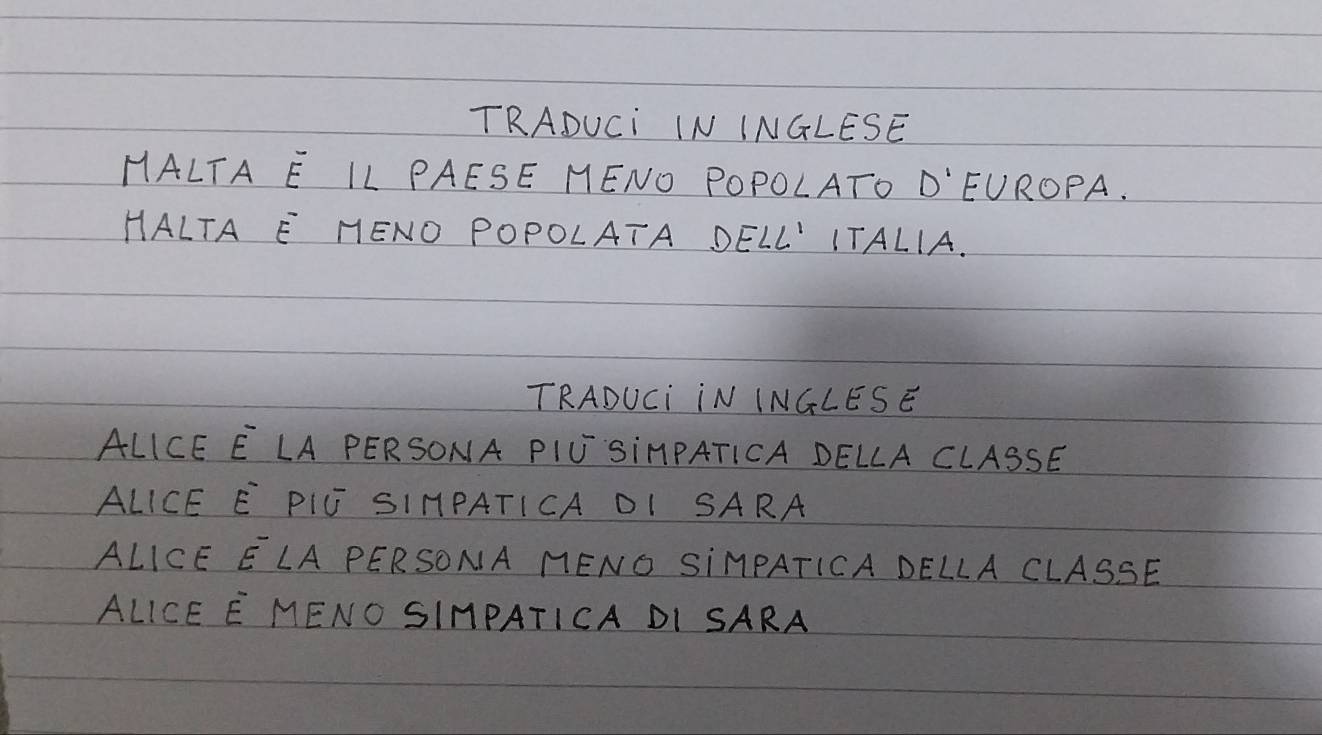 TRADUCI IN INGLESE
MALTA È IL PAESE MENO POPOLATO D'EUROPA.
MALTA È MENO POPOLATA DELL' ITALIA.
TRADUCI IN INGLESE
ALICE È LA PERSONA PIÙ SIMPATICA DELLA CLASSE
ALICE È PIÙ SIMPATICA DI SARA
ALICE È LA PERSONA MENO SIMPATICA DELLA CLASSE
ALICE È MENO SIMPATICA DI SARA